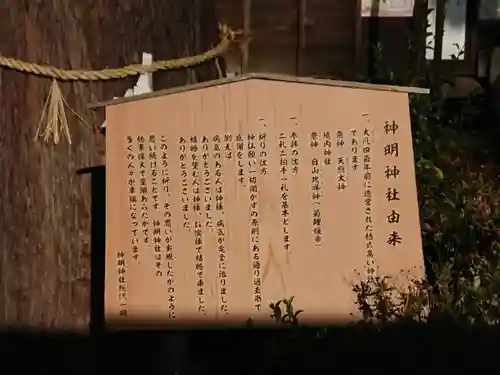 神明神社由来
一、大凡四百年前に造営された格式高い神
であります。
祭神 天照大神
境内神社
祭神 白山比咩神（菊理媛命）
一、参拝の仕方
二礼二拍手一礼を基本とします。
一、祈りの仕方
神は願い一切聞かずの原則にある通り過去形で
感謝をします。
例えば
病気のある人は神様、病気が完全に治りました、
ありがとうございました。
結婚を望む人は神様、お陰様で結婚できました、
ありがとうございました。
このように祈り、その思いが実現したかのように
思い続けることです。神明神社はその
効果抜群で霊験あらたかです。
多くの人々が幸福になっています。
神明神社総代一同